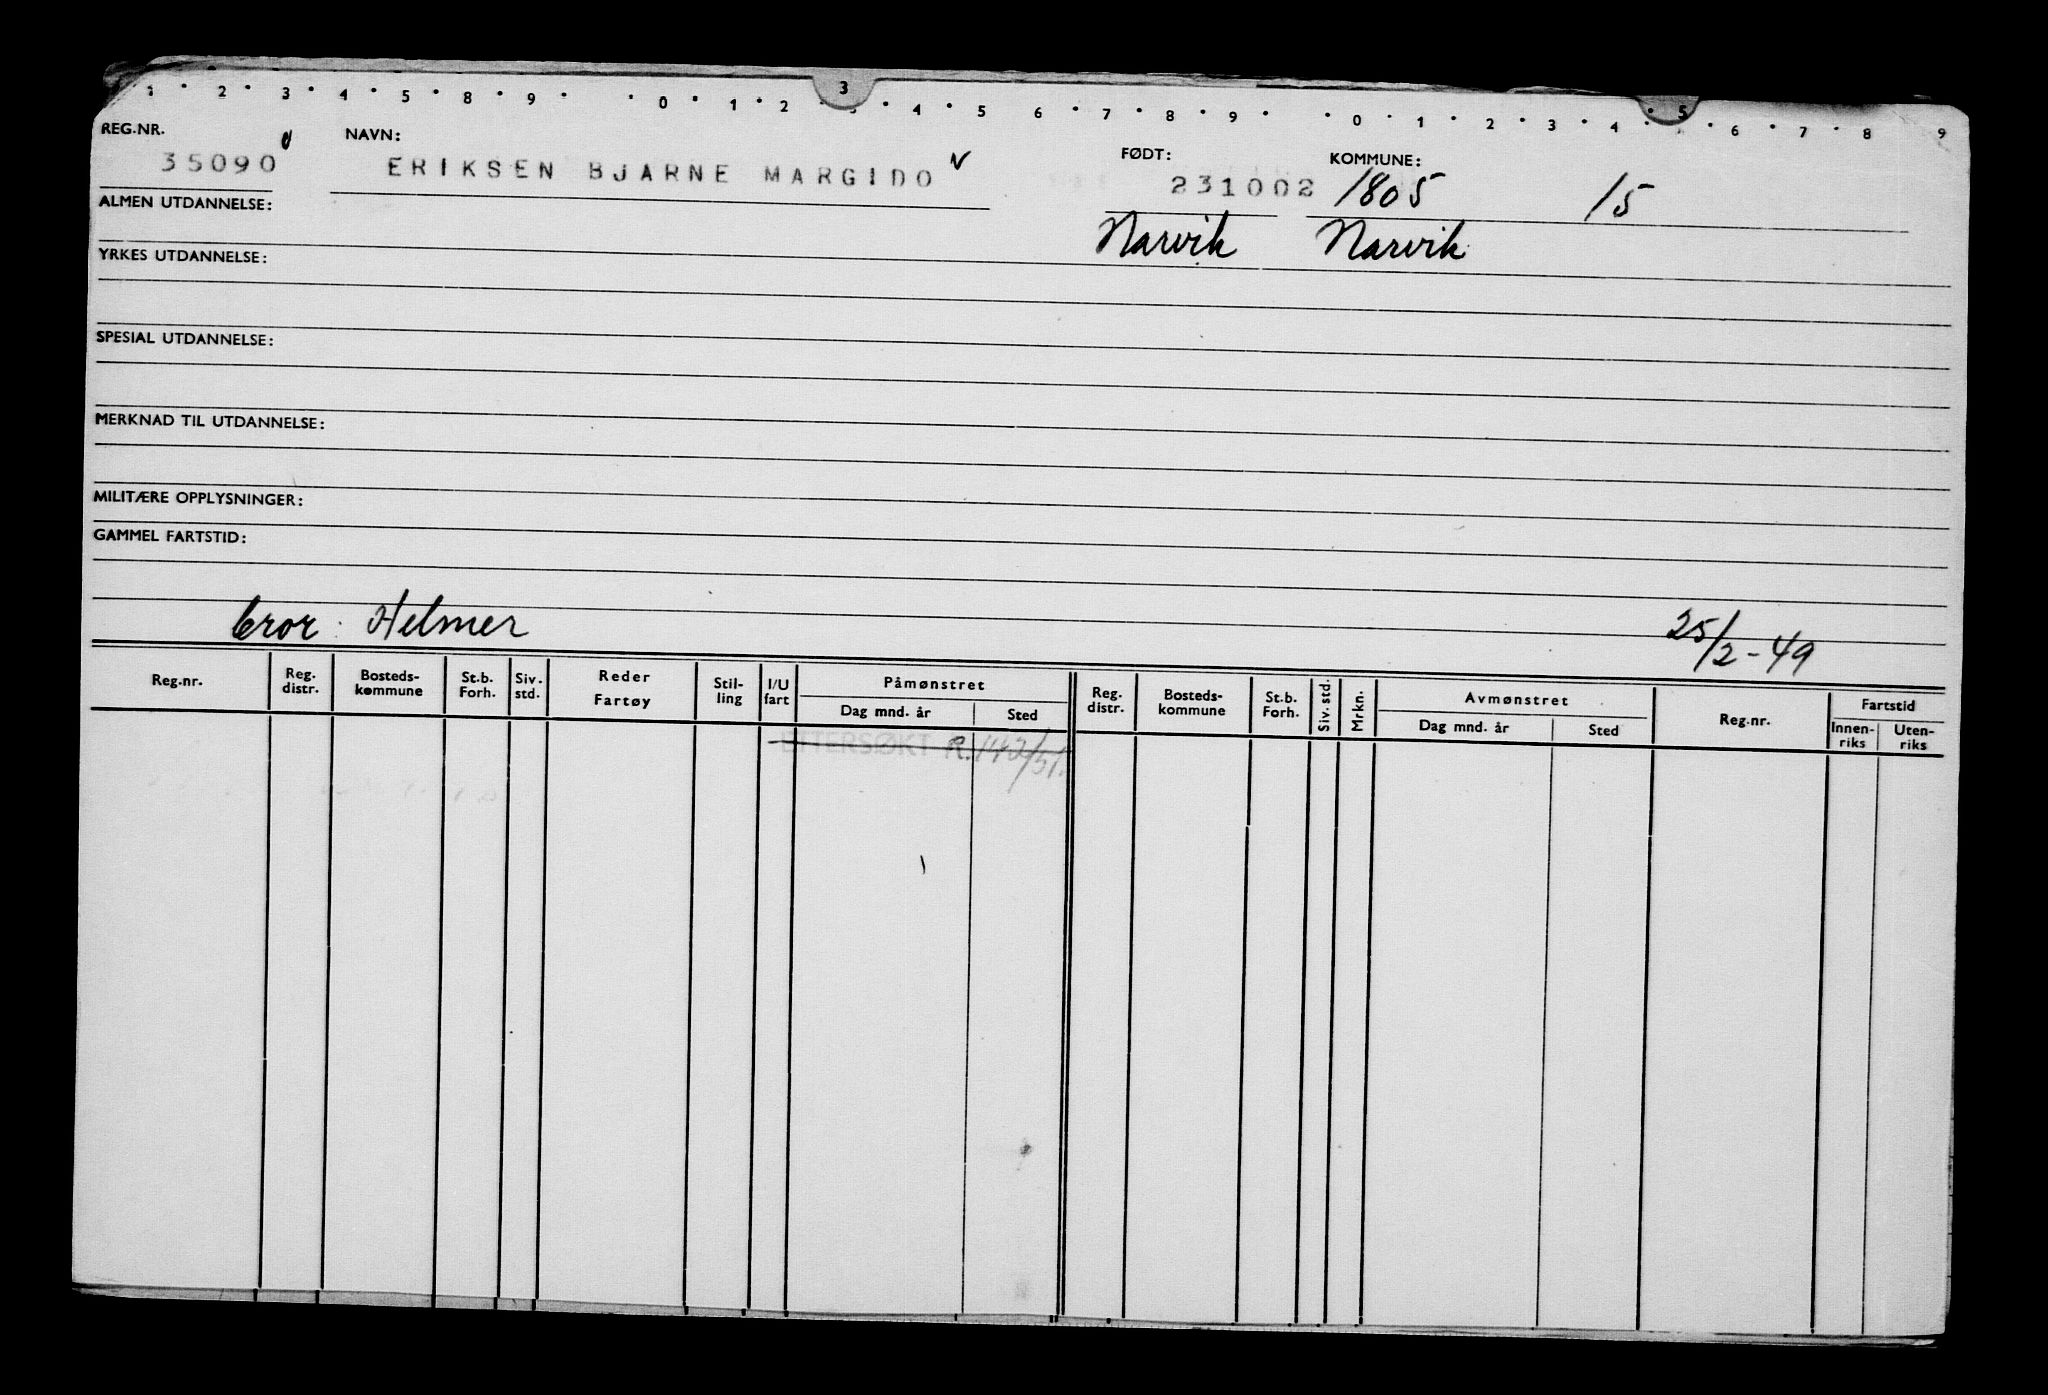 1 · 2 · 3 · 4 · 5 · 8 · 9 · · 0 · 1 · 2 · 3 · 4 · 5 · 6 · 7 · 8 · 9 · · 0 · 1 · 2 · 3 · 4 · 5 · 6 · 7 · 8 9
REG.NR. NAVN: FØDT: KOMMUNE:
35090 ERIKSEN BJARNE MARGIDO 231002 1805 15
ALMEN UTDANNELSE: Narvik Narvik
YRKES UTDANNELSE:
SPESIAL UTDANNELSE:
MERKNAD TIL UTDANNELSE:
MILITÆRE OPPLYSNINGER:
GAMMEL FARTSTID:
bror: Helmer 25/2-49
Reg.nr. Reg. distr. Bosteds- kommune St.b. Forh. Siv. std. Reder Fartøy Stil- ling I/U fart Påmønstret Dag mnd. år Sted Reg. distr. Bosteds- kommune St.b. Forh. Siv. std. Mrkn. Avmønstret Dag mnd. år Sted Reg.nr. Fartstid Innen- riks Uten- riks
ETTERSØKT R. 142/51.